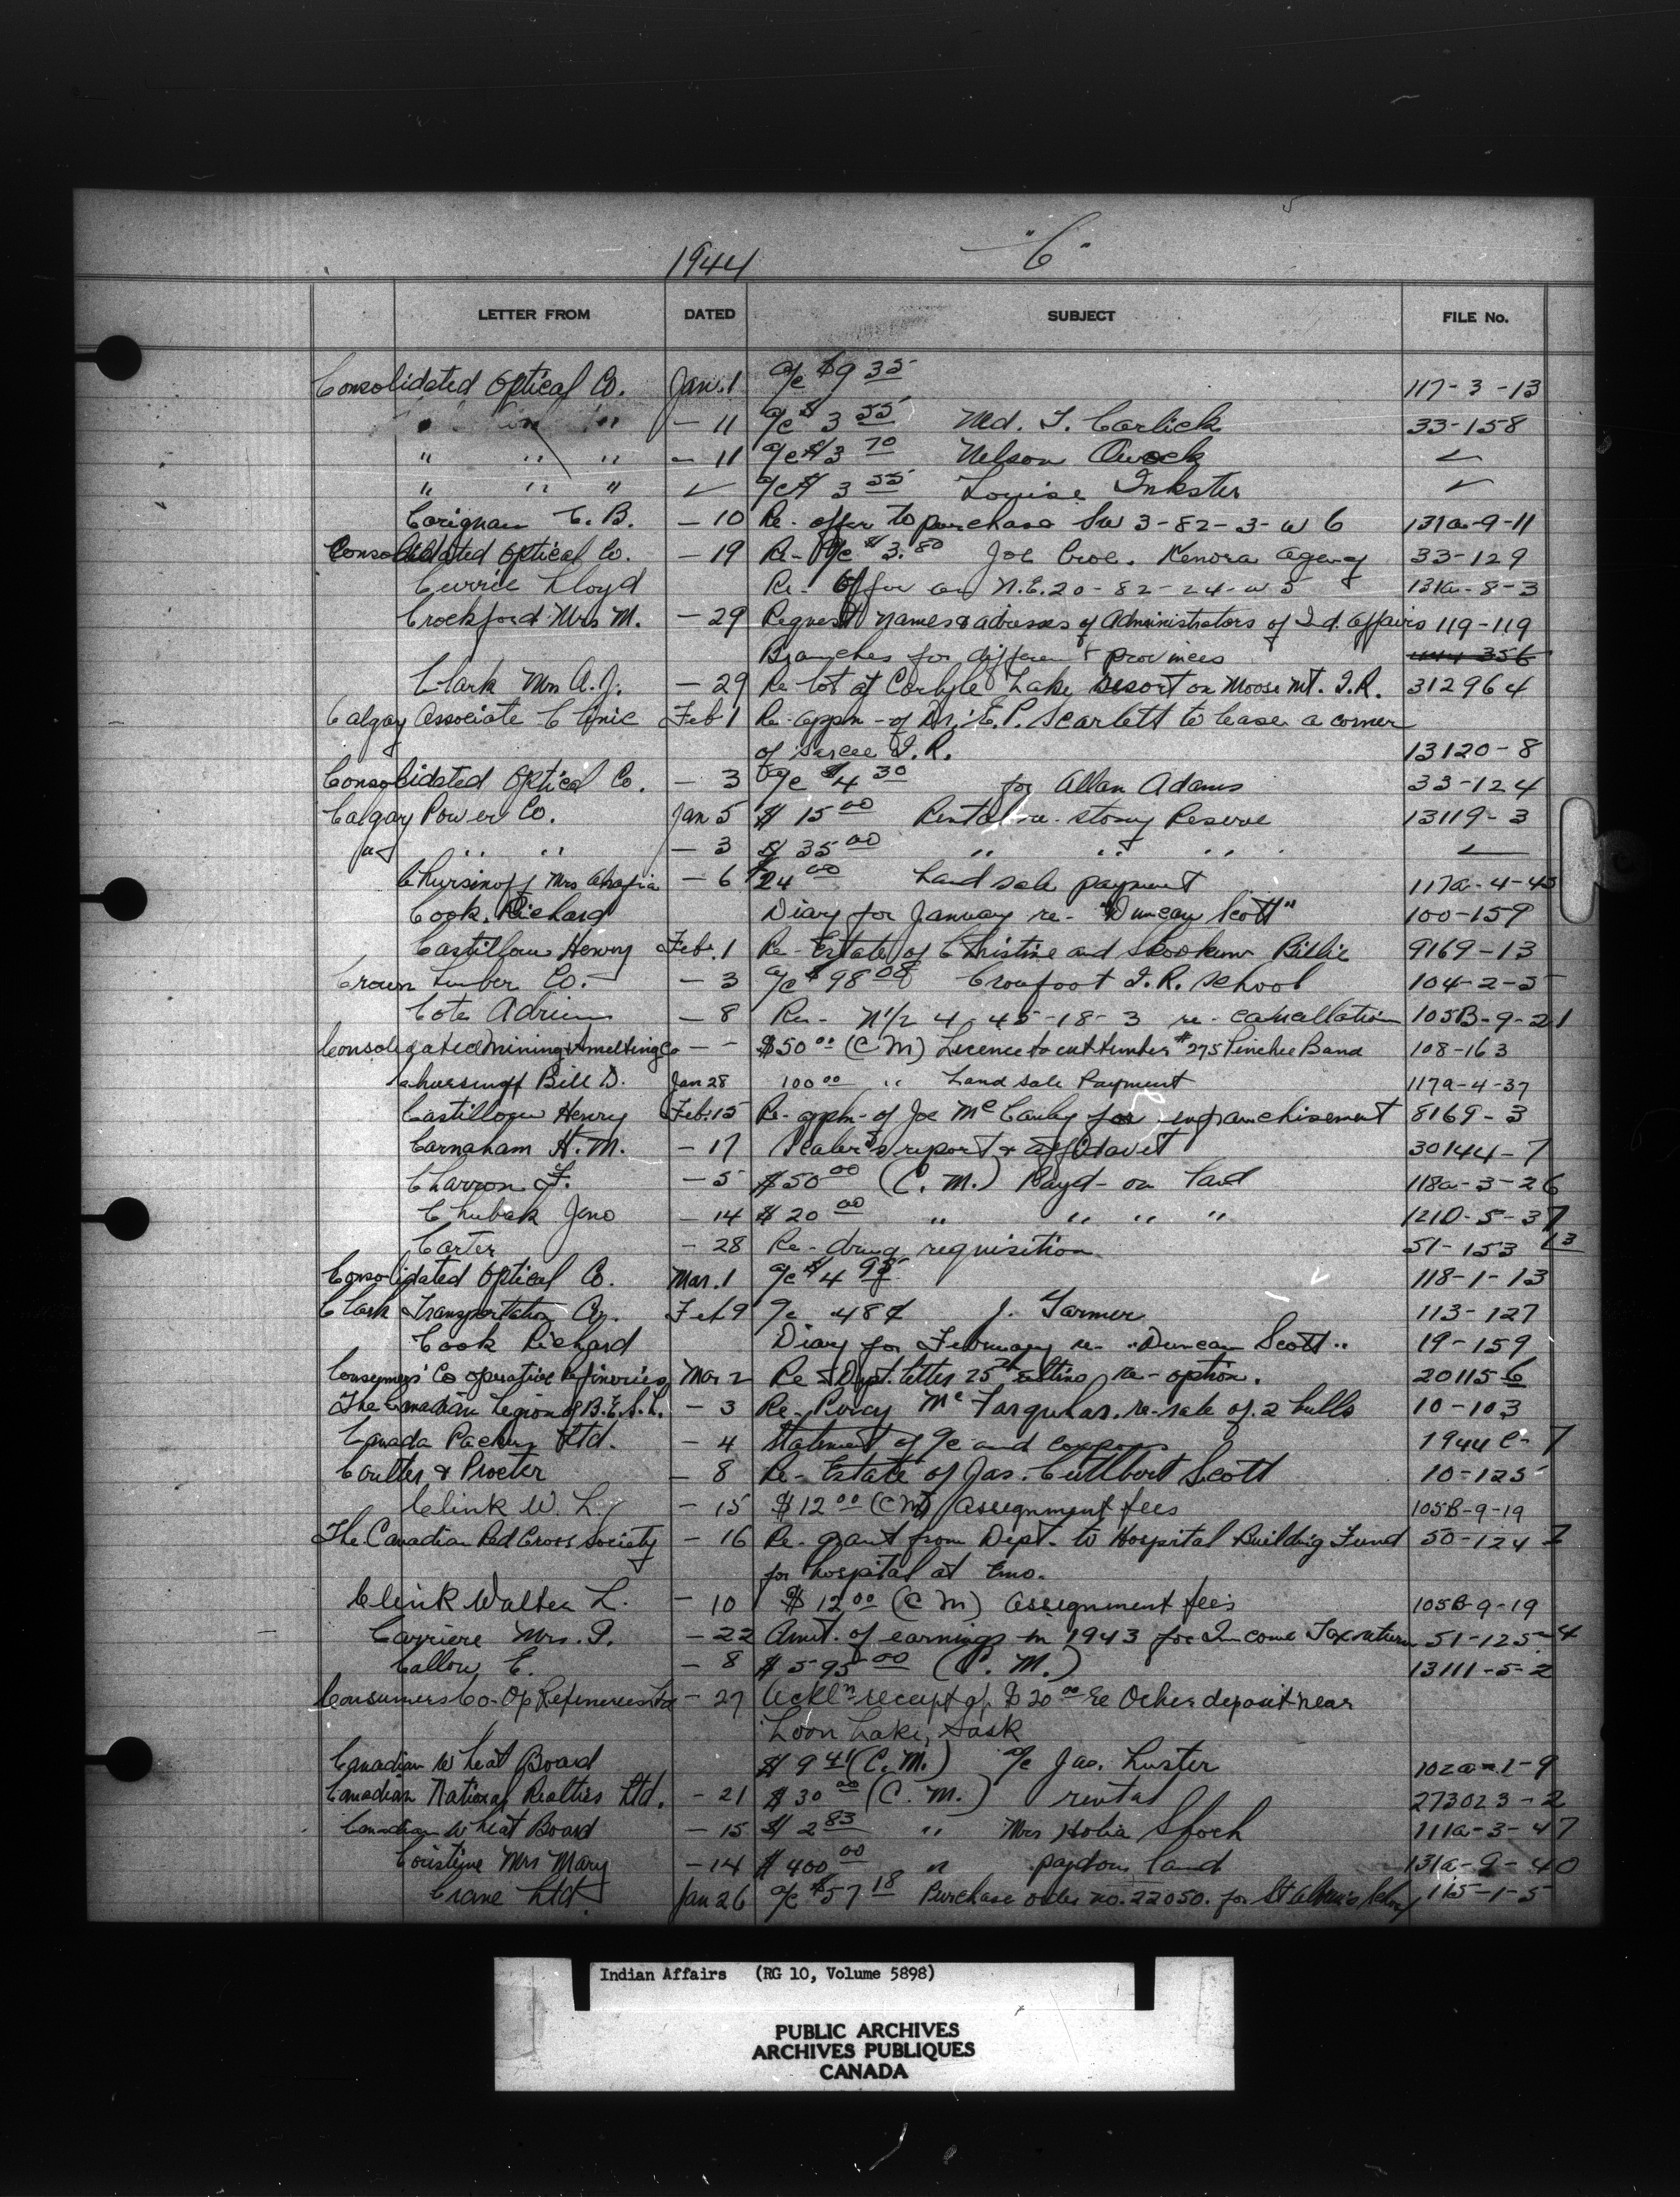 1944 "C"
LETTER FROM DATED SUBJECT FILE No.
Consolidated Optical Co. Jan. 1 a/c $9 35 117-3-13
" " - 11 a/c $3 55 Md. T. Carlick 33-158
" " " - 11 a/c $3 70 Nelson ✓
" " " ✓ a/c $3 55 Louise Inkster ✓
Corignan C. B. - 10 Re- offer to purchase SW 3-82-3-W 6 131a-9-11
Consolidated Optical Co. - 19 Re- a/c $3.80 Joe Croe. Kenora Agency 33-129
Currie Lloyd Re- Offer on N.E. 20-82-24-W 5 131a-8-3
Crockford Mrs M. - 29 Request names & adresses of Administrators of Ind. Affairs 119-119
Branches for different provinces 356
Clark Mrs A. J. - 29 Re lot at Carlyle Lake resort on Moose Mt. I.R. 312964
Calgary Associate Clinic Feb 1 Re- appn- of Dr. E. P. Scarlett to lease a corner
of Sarcee I.R. 13120-8
Consolidated Optical Co. - 3 a/c $4 30 for Allan Adams 33-124
Calgary Power Co. Jan 5 $15 00 Rental re- Stony Reserve 13119-3
" " " - 3 $35 00 " " "
Chursinoff Mrs - 6 $24 00 Land sale payment 117a-4-43
Cook, Richard Diary for January re- "Duncan Scott" 100-159
Castillou Henry Feb. 1 Re- Estate of Christine and Skookum Billie 9169-13
Crown Lumber Co. - 3 a/c $98 08 Crowfoot I.R. School 104-2-5
Cote Adrien - 8 Re- N1/2 4-45-18-3 re- cancellation 105B-9-21
Consolidated Mining & Smelting Co - - $50 00 (C M) Licence to cut timber #275 Pinchie Band 108-163
Chursinoff Bill D. Jan 28 100 00 " Land sale Payment 117a-4-37
Castillou Henry Feb. 15 Re- appn- of Joe McCauley for enfranchisement 8169-3
Carnaham H. M. - 17 Scaler's report & affidavit 30144-7
Charron F. - 5 $50 00 (C. M.) Payd- on land 118a-3-26
Chubak Jeno - 14 $20 00 " " " " 121D-5-37
Carter - 28 Re- drug requisition 51-153 13
Consolidated Optical Co. Mar. 1 a/c $4 95 118-1-13
Clark Transportation Co. Feb 9 a/c 48¢ J. Farmer 113-127
Cook Richard Diary for February re- "Duncan Scott" 19-159
Consumers' Co operative Refineries Mar 2 Re- Dept. letter 25th ultimo re- option. 20115-6
The Canadian Legion of B.E.S.L. - 3 Re- Percy McFarquhar. re- sale of 2 bulls 10-103
Canada Packers Ltd. - 4 Statement of a/c and coupons 1944 C-7
Coulter & Procter - 8 Re- Estate of Jas. Cuthbert Scott 10-125
Clink W. L. - 15 $12 00 (C M) Assignment fees 105B-9-19
The Canadian Red Cross Society - 16 Re- grant from Dept. to Hospital Building Fund 50-124
for hospital at Emo.
Clink Walter L. - 10 $12 00 (C M) Assignment fees 105B-9-19
Carriere Mrs. P. - 22 Amt. of earnings in 1943 for Income Tax return 51-125-4
Callow E. - 8 $595 00 (C. M.) 13111-5-2
Consumers Co-Op Refineries Ltd - 27 Ackln receipt of $20 00 re Ocher deposit near
Loon Lake, Sask
Canadian Wheat Board $9 41 (C. M.) a/c Jas. Luster 102a-1-9
Canadian National Realties Ltd. - 21 $30 00 (C. M.) rental 273023-2
Canadian Wheat Board - 15 $2 83 " Mrs 111a-3-47
Coristine Mrs Mary - 14 $400 00 " payd on land 131a-9-40
Crane Ltd Jan 26 a/c $57 18 Purchase order no. 22050. for St 115-1-5
Indian Affairs (RG 10, Volume 5898)
PUBLIC ARCHIVES
ARCHIVES PUBLIQUES
CANADA